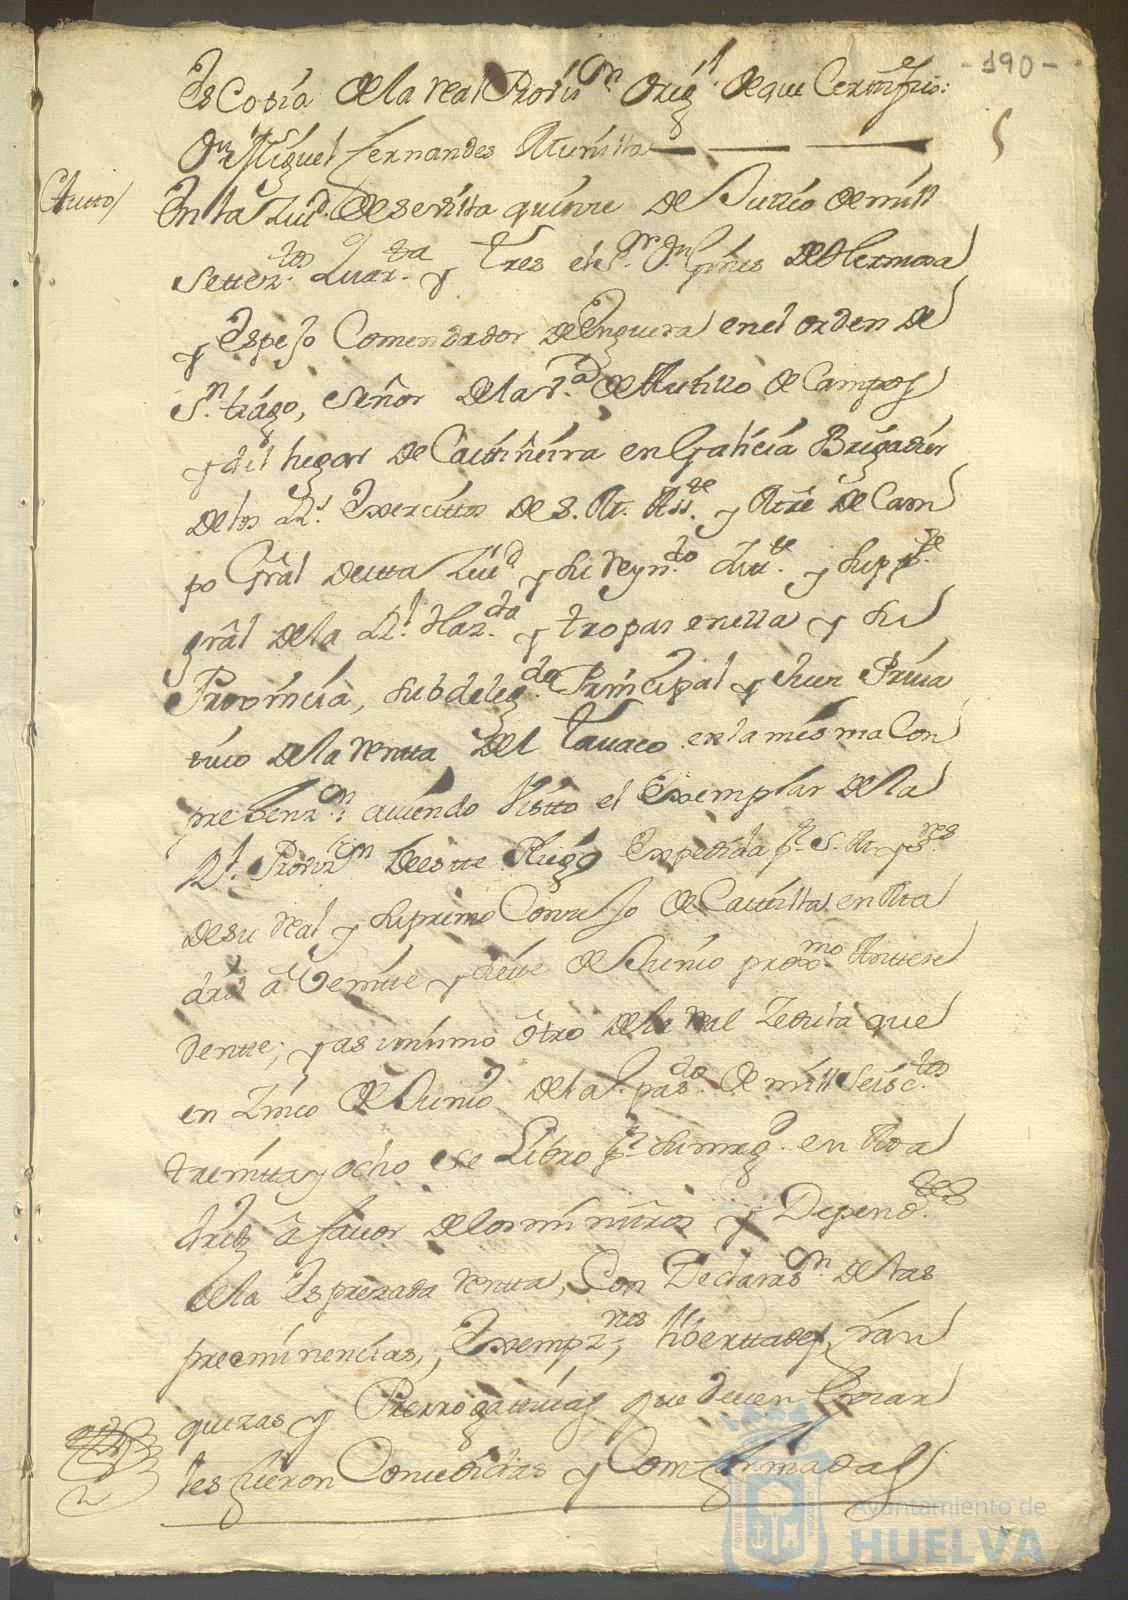 -190-
Es Copia de la real Provis.on Orig.l de que Certifico:
Dn. Miguel Fernandes Munilla
Autto/
En la Ziud. de sevilla quinse de Jullio de mill
settez.tos Quar.ta y tres el S.r D.n Ginés de Hermosa
y Espejo Comendador de Enguera en el orden de
S.n tiago, señor de la v.a de Mutillo de Campos
y del lugar de Castiñeira en Galicia Brigadier
de los R.s Exercittos de S. M. Asi.te y Mtre de Cam
po Grãl de esta Ziud y su reyn.do Int.te y sup.te
grãl de la R.l Haz.da y tropas en ella y su
Provincia, subdeleg.do Principal y Juez Priua
tiuo de la rentta del Tauaco en la misma Con
prehenz.on auiendo Visto el Exemplar de la
R.l Proviz.on de este Pliego Expedida p.r S. M. y S.res
de su real y supremo Conzejo de Castilla en Ma
drid â Veintte y siete de Junio prox.mo Antese
dentte; y asimismo ôtro de la real Zedula que
en Zinco de Junio del a. pas.do de mill seisc.tos
treintta y ocho se Libro p.r su mag.d en Ma
drid â favor de los ministros y Depend.tes
de la Espresada rentta, Con Declaras.on de las
preeminencias, Exempz.nes, liberttades, fran
quezas y Prerrogattiuas que deuen Gozar
les fueron Consedidas y Comfirmadas
Ayuntamiento de
HUELVA